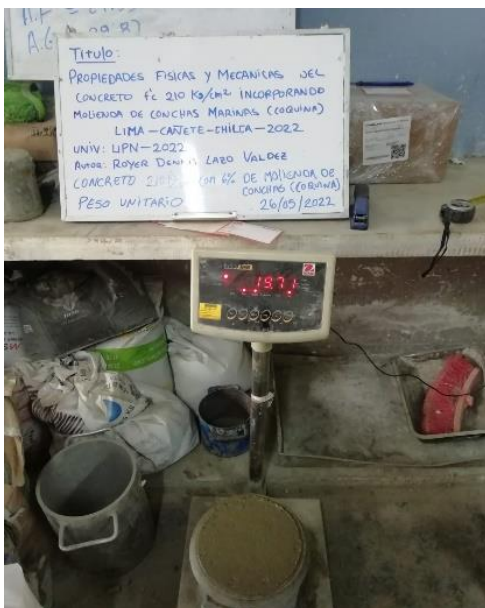 Titulo:
PROPIEDADES FISICAS Y MECANICAS DEL
CONCRETO f'c 210 Kg/cm2 INCORPORANDO
MOLIENDA DE CONCHAS MARINAS (COQUINA)
LIMA - CAÑETE - CHILCA - 2022
UNIV: UPN - 2022
Autor: ROYER DENNIS LAZO VALDEZ
CONCRETO CON 6% DE MOLIENDA DE
CONCHAS (COQUINA)
PESO UNITARIO 26/05/2022
19.71